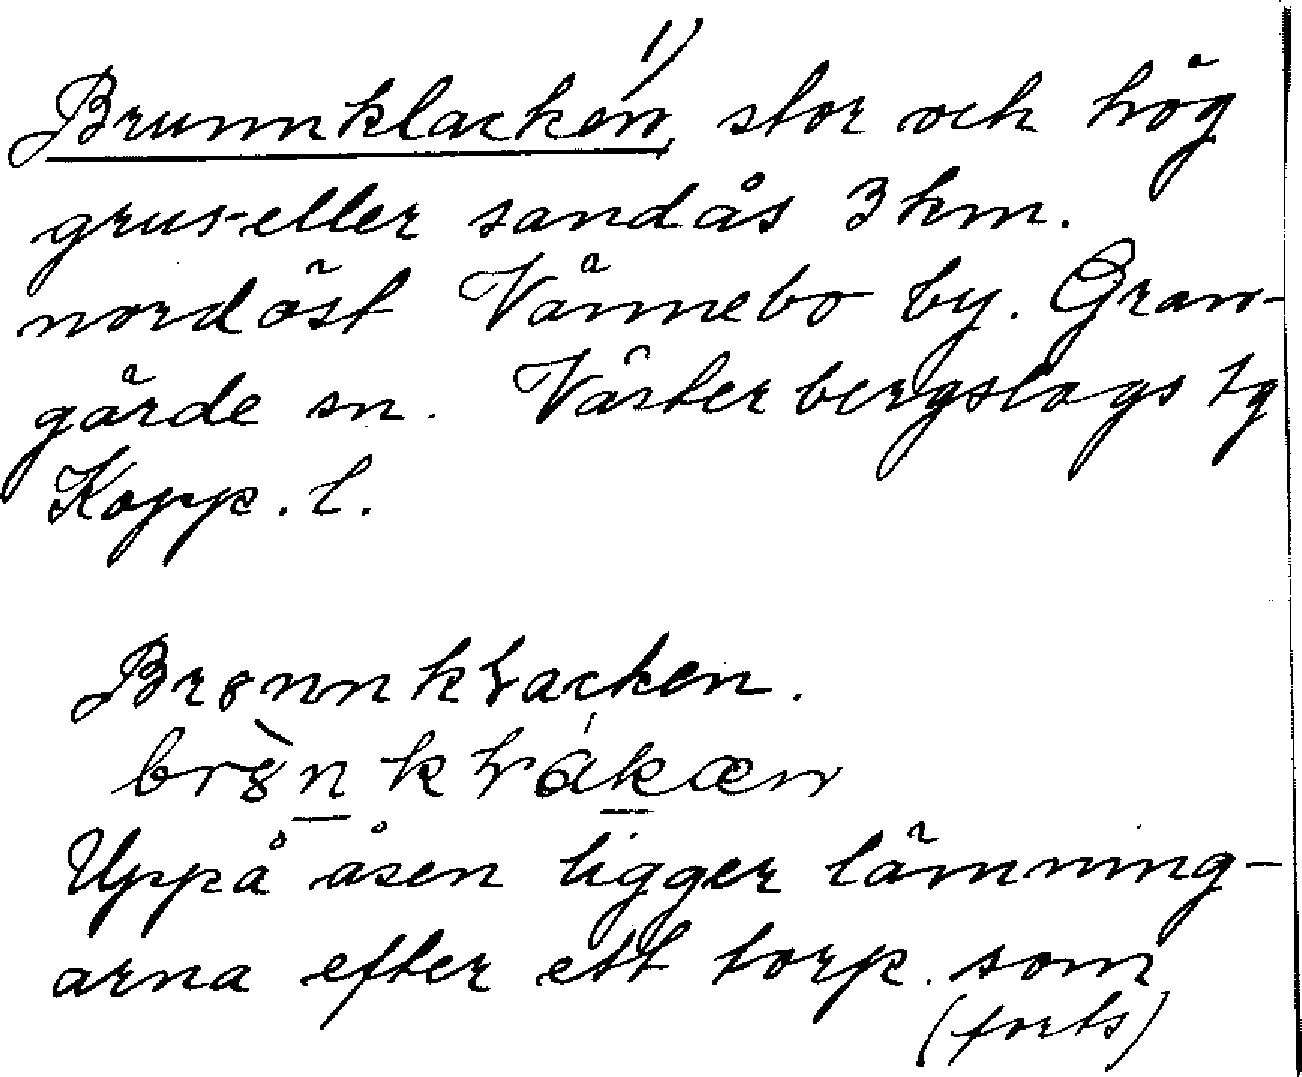 Brunnklacken, 1) stor och hög
grus- eller sandås 3 km.
nordöst Vännebo by. Gran-
gärde sn. Västerbergslags tg
Kopp. l.
Uppå åsen ligger lämning-
arna efter ett torp. som
(forts)